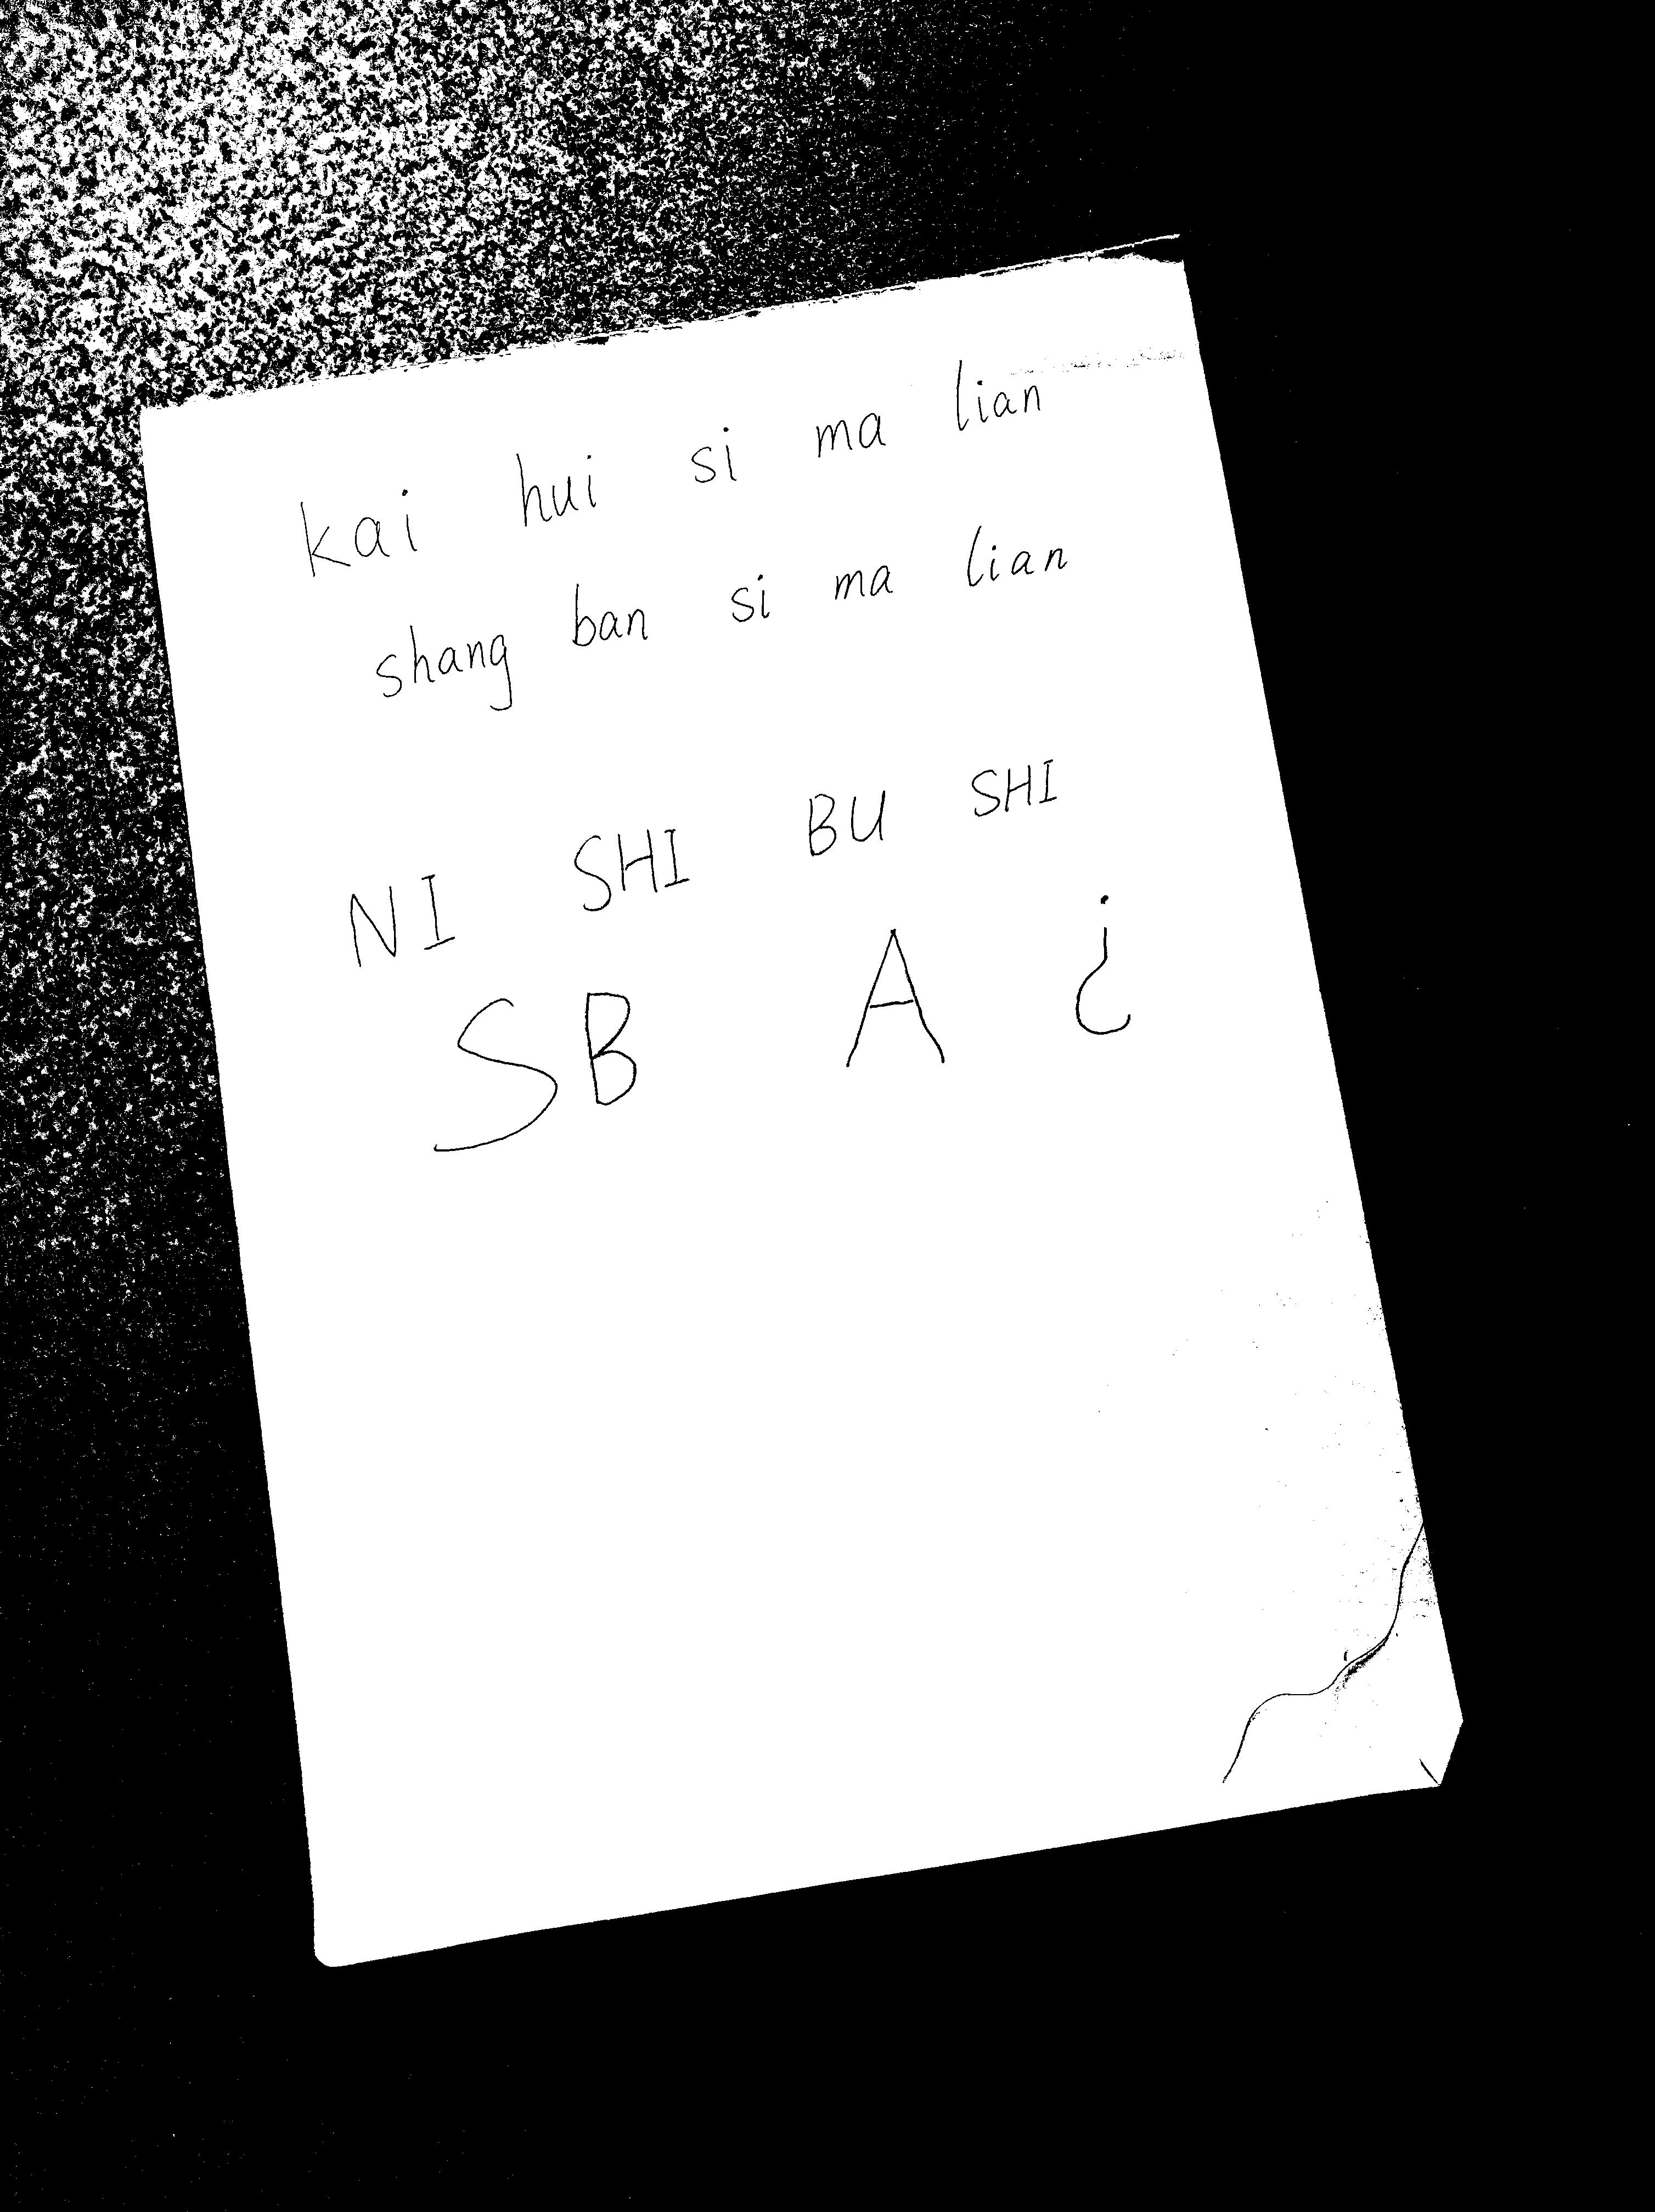 kai hui si ma lian
shang ban si ma lian
NI SHI BU SHI
SB A ¿